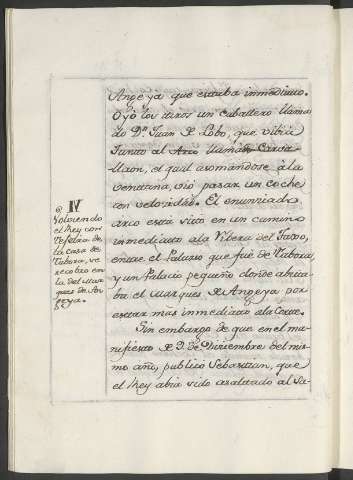 Angeya que estaba inmediato.
Oyó los tiros un caballero llama-
do Dn. Juan de Lobo, que vibia
Junto al Arco llamado
el qual asomandose à la
ventana, vió pasar un coche
con velocidad. El enunziado
arco está sito en un camino
inmediato ala Ribera del Tajo,
entre el Palacio que fué de Tabora,
y un Palacio pequeño donde abita-
ba el Marques de Angeya por
estar mas inmediato ala Corte.
Sin embargo de que en el ma-
nifiesto de 9. de Diziembre del mis-
mo año, publicó Sebastian, que
el Rey abia sido asaltado al Sa-
IV
Volviendo
el Rey con
Texeira de
la casa de
Tabora, se
recobro en
la del Mar-
ques de An-
geya.